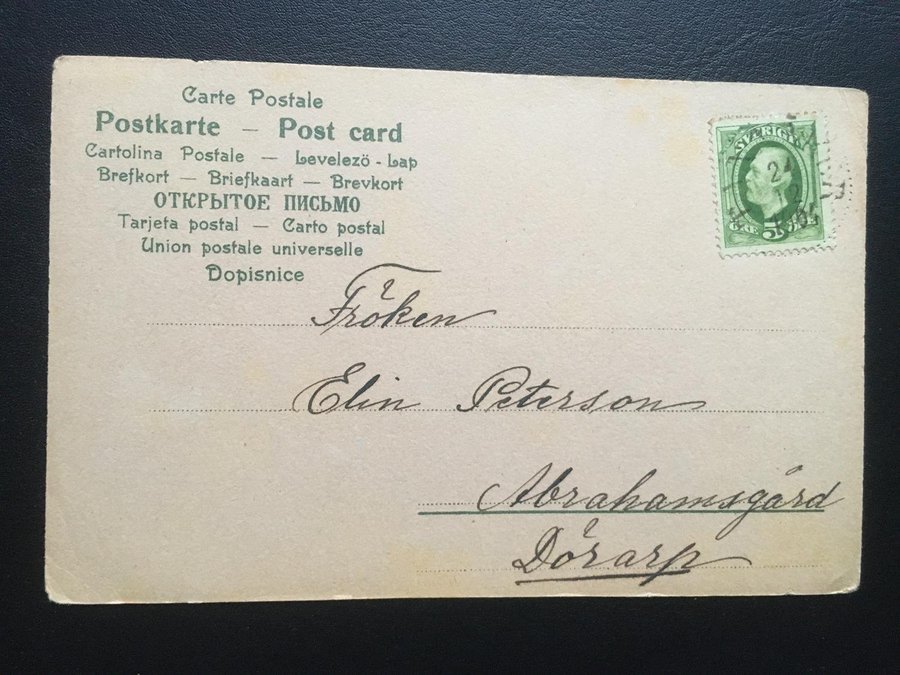 Carte Postale
Postkarte — Post card
Cartolina Postale — Levelezö-Lap
Brefkort — Briefkaart — Brevkort
ОТКРЫТОЕ ПИСЬМО
Tarjeta postal — Carto postal
Union postale universelle
Dopisnice
SVERIGE
24
5
Fröken
Elin Peterson
Abrahamsgård
Dörarp